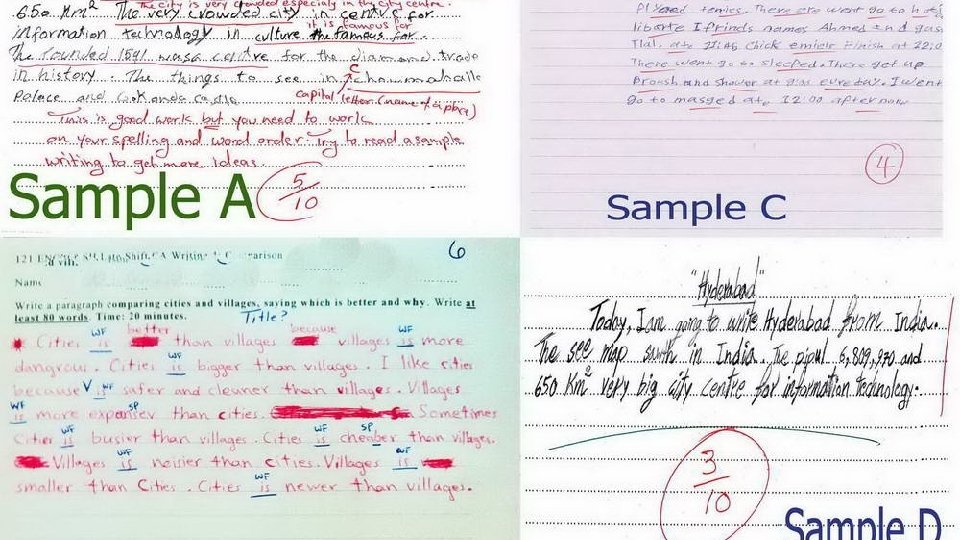 the city is very crowded especially in the city centre.
650 Km² The very crowded city in centre for
it is famous for
information technology in culture the famous for.
The founded 1591 was a centre for the diamond trade
in history. The things to see in chowmahalle
C
Palace and
capital letter (name of a place)
This is good work but you need to work
on your spelling and word order. Try to read a sample
writing to get more ideas.
5/10
Sample A
Played tennis. There are went go to
names Ahmed and
finish at 22:00
There went go to sleeped. There get up
and shower at everyday. I went
go to masged ate 12:00 afternoon
4
Sample C
6
Name
Write a paragraph comparing cities and villages, saying which is better and why. Write at
least 80 words. Time: 20 minutes.
Title?
WF better because WF
Cities is than villages villages is more
WF
dangrou. Cities is bigger than villages. I like cities
V WF
because is safer and cleaner than villages. Villages
WF SP
is more expansev than cities. Sometimes
WF WF SP
Cities is busier than villages. Cities is cheaber than villages.
WF WF
Villages is noisier than cities. Villages is
WF
smaller than Cities. Cities is newer than villages.
"Hyderabad"
Today, I am going to write Hyderabad from India.
The see map surth in India. The pipul 6,809,970 and
650 Km² very big city centre for information technology.
3/10
Sample D